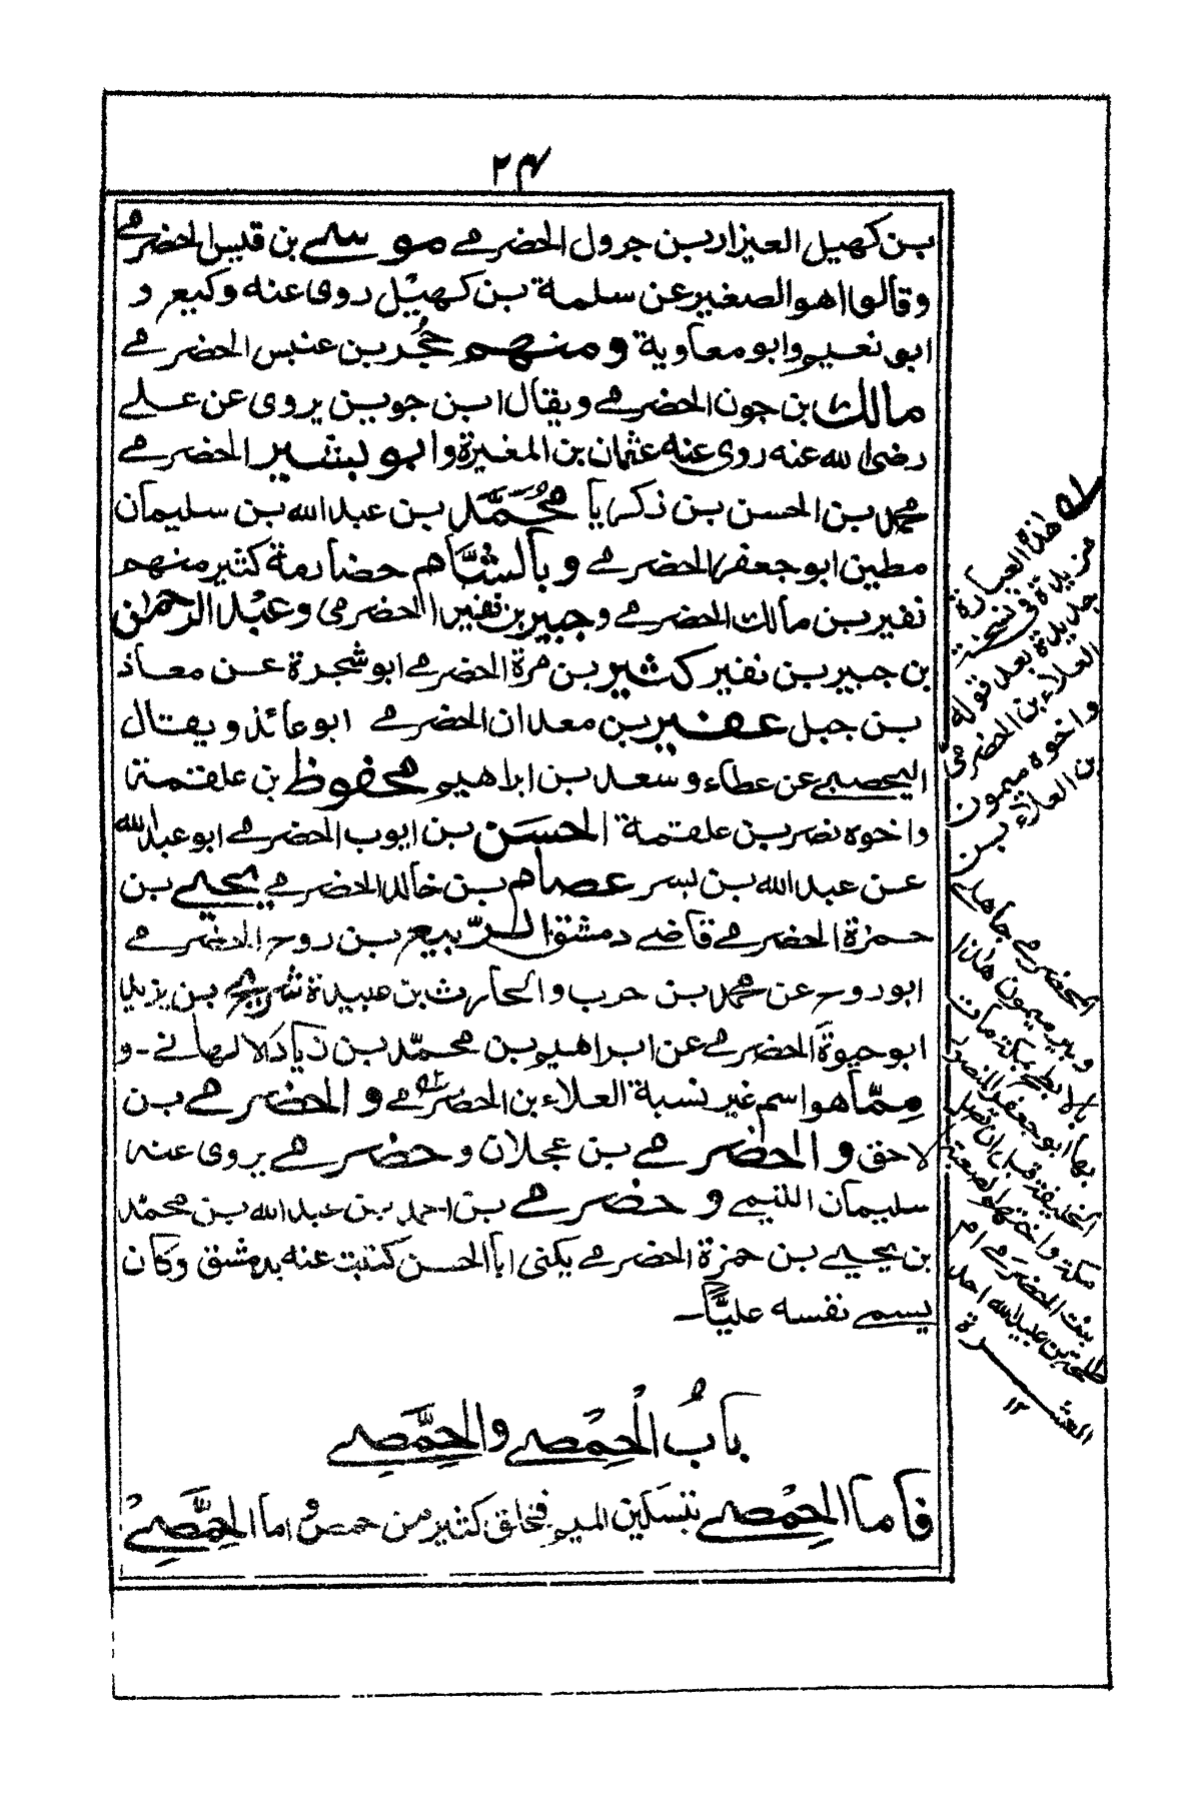 ٢٤
بن كهيل العيزار بن جرول الحضرمي موسى بن قيس الحضرمي
وقالوا هو الصغير عن سلمة بن كهيل روى عنه وكيع و
ابو نعيم وابو معاوية ومنهم حُجر بن عنبس الحضرمي
مالك بن جون الحضرمي ويقال ابن جوين يروى عن علي
رضى الله عنه روى عنه عثمان بن المغيرة وابو بشير الحضرمي
محمد بن الحسن بن زكريا مُحمَّد بن عبد الله بن سليمان
مطين ابو جعفر الحضرمي وبالشَّام حضارمة كثير منهم
نفير بن مالك الحضرمي وجبير بن نفير الحضرمي وعبد الرحمٰن
بن جبير بن نفير كثير بن مرة الحضرمي ابو شجرة عن معاذ
بن جبل عفير بن معدان الحضرمي ابو عائذ ويقال
اليحصبي عن عطاء وسعد بن ابراهيم محفوظ بن علقمة
واخوه نصر بن علقمة الحسن بن ايوب الحضرمي ابو عبد الله
عن عبد الله بن بسر عصام بن خالد الحضرمي يحيى بن
حمزة الحضرمي قاضي دمشق الرَّبيع بن روح الحضرمي
ابو روح عن محمد بن حرب والحارث بن عبيدة شريح بن يزيد
ابو حيوة الحضرمي عن ابراهيم بن محمّد بن زياد الالهاني - و
مِمّا هو اسم غير نسبة العلاء بن الحضرمي والحضرمي بن
لاحق والحضرمي بن عجلان وحضرمي يروى عنه
سليمان التيمي وحضرمي بن احمد بن عبد الله بن محمّد
بن يحيى بن حمزة الحضرمي يكنى ابا الحسن كتبت عنه بدمشق وكان
يسمي نفسه عليًّا-
بابُ الْحِمْصي والحِمَّصي
فاما الحِمْصي بتسكين الميم فخلق كثير من حمص واما الحِمَّصِيْ
له هذه العبارة
مزيدة في نسخة
جديدة بعد قوله
العلاء بن الحضرمي
واخوه ميمون
بن العلاء بن
الحضرمي جاهلي
وبير ميمون هذا
بالابطح بمكة مات
بها ابو جعفر المنصور
الخليفة قبل ان تصل
مكة واختهم الصعبة
بنت الحضرمي ام
طلحة بن عبيد الله احد
العشرة
١٢